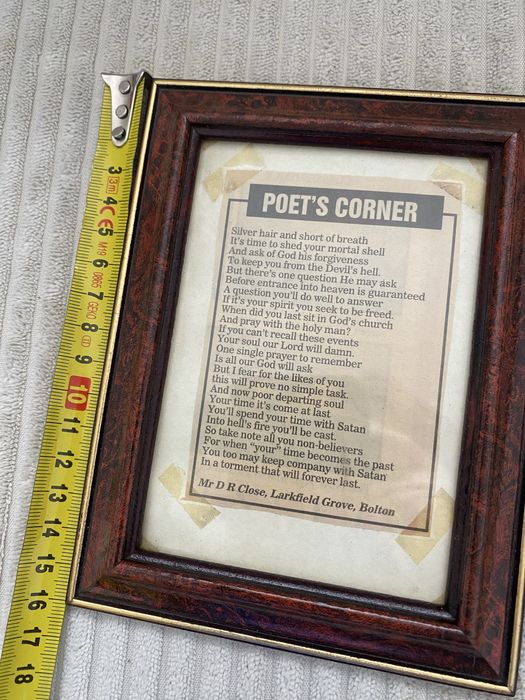 POET'S CORNER
Silver hair and short of breath
It's time to shed your mortal shell
And ask of God his forgiveness
To keep you from the Devil's hell.
But there's one question He may ask
Before entrance into heaven is guaranteed
A question you'll do well to answer
If it's your spirit you seek to be freed.
When did you last sit in God's church
And pray with the holy man?
If you can't recall these events
Your soul our Lord will damn.
One single prayer to remember
Is all our God will ask
But I fear for the likes of you
this will prove no simple task.
And now poor departing soul
Your time it's come at last
You'll spend your time with Satan
Into hell's fire you'll be cast.
So take note all you non-believers
For when "your" time becomes the past
You too may keep company with Satan
In a torment that will forever last.
Mr D R Close, Larkfield Grove, Bolton
3 3m 4 CE 5 M9 6 0865 7 GEKO 8 9 10 11 12 13 14 15 16 17 18